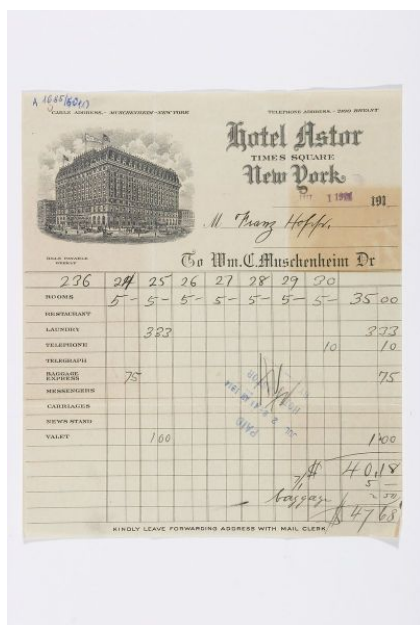 CABLE ADDRESS.- MUSCHENHEIM-NEW YORK
TELEPHONE ADDRESS.- 2100 BRYANT
Hotel Astor
TIMES SQUARE
New York,
191
M Franz
To Wm. C. Muschenheim Dr
236 24 25 26 27 28 29 30
ROOMS 5- 5- 5- 5- 5- 5- 5- 35 00
RESTAURANT
LAUNDRY 333 333
TELEPHONE 10 10
TELEGRAPH
BAGGAGE EXPRESS 75 75
MESSENGERS
CARRIAGES
NEWS STAND
VALET 100 1 00
PAID
$ 40.18
5 -
baggage 2 50
$ 47.68
KINDLY LEAVE FORWARDING ADDRESS WITH MAIL CLERK